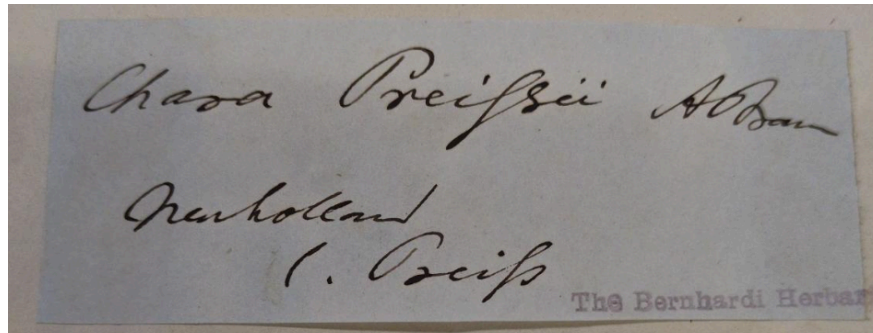 Chara Preiſsii A Braun
Neuholland
l. Preiſs
The Bernhardi Herbar